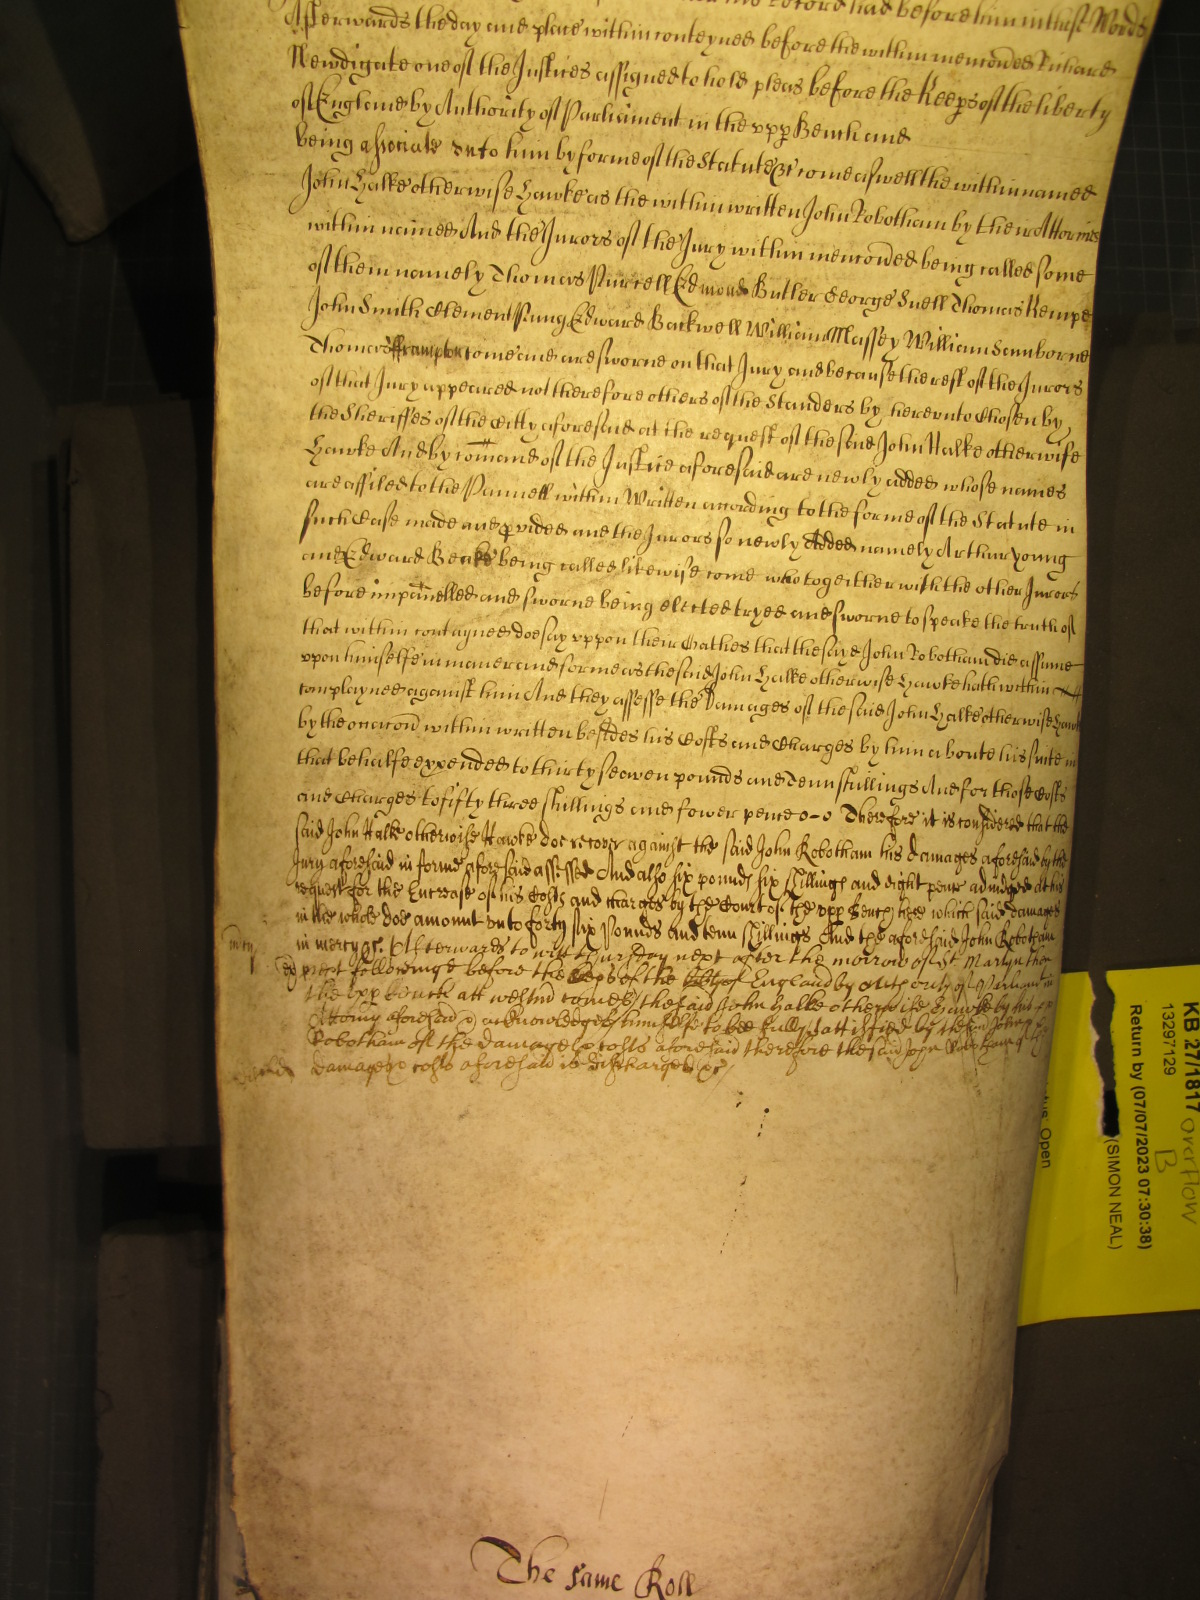 record had before him in these Words
Afterwards the day and place within conteyned before the within menconed Richard
Newdigate one of the Justices assigned to hold pleas before the Keeps of the liberty
of England by Authority of Parliament in the upp Bench and
being associate unto him by forme of the Statute &c come aswell the within named
John Halke otherwise Hawke as the within written John Robotham by their Attornies
within named And the Jurors of the Jury within menconed being called some
of them namely Thomas Purcell Edmond Butler George Snell Thomas Kempe
John Smith Clement Pung Edward Backwell William Massey William Samborne
Thomas Frampton come and are sworne on that Jury and because the rest of the Jurors
of that Jury appeared not therefore others of the Standers by hereunto Chosen by
the Sheriffes of the Citty aforesaid at the request of the said John Halke otherwise
Hawke And by comand of the Justice aforesaid are newly added whose names
are affiled to the Pannell within Written according to the forme of the Statute in
such Case made and pvided and the Jurors so newly Added namely Arthur Young
and Edward Beake being called likewise come who together with the other Jurors
before impanelled and sworne being elected tryed and sworne to speake the truth of
that within contayned doe say uppon their Oathes that the sayd John Robotham did assume
upon himselfe in maner and forme as the said John Halke otherwise Hawke hath within
complayned against him And they assesse the Damages of the said John Halke otherwise Hawke
by the occacon within written besides his Costs and Charges by him aboute his suite in
that behalfe expended to thirty seaven pounds and Tenn shillings And for those Costs
and Charges to fifty three shillings and fower pence o-o Therefore it is considered that the
said John Halke otherwise Hawke doe recover against the said John Robotham his damages aforesaid by the
Jury aforesaid in forme aforesaid assessed And also six pounds six shillings and eight pence adiudged at his
request for the Encrease of his Costs and charges by the Court of the upp Bench here which said damages
in the whole doe amount unto forty six Pounds and tenn shillings And the aforesaid John Robotham
mcy
in mercy &c. Afterwards to witt Thursday next after the morrow of St Martyn then
next followinge before the Keeps of the libty of England by authority of Parliament in
the upp bench att westmr comes the said John Halke otherwise Hawke by his
Attorny aforesaid & acknowledgeth himselfe to bee fully sattisfied by the said John
Robotham of the damages & costs aforesaid therefore the said John Robotham of the
damages & costs aforesaid is discharged &c
The same Roll
KB 27/1817 overflow
13297129 B
Return by (07/07/2023 07:30:38)
(SIMON NEAL)
Open